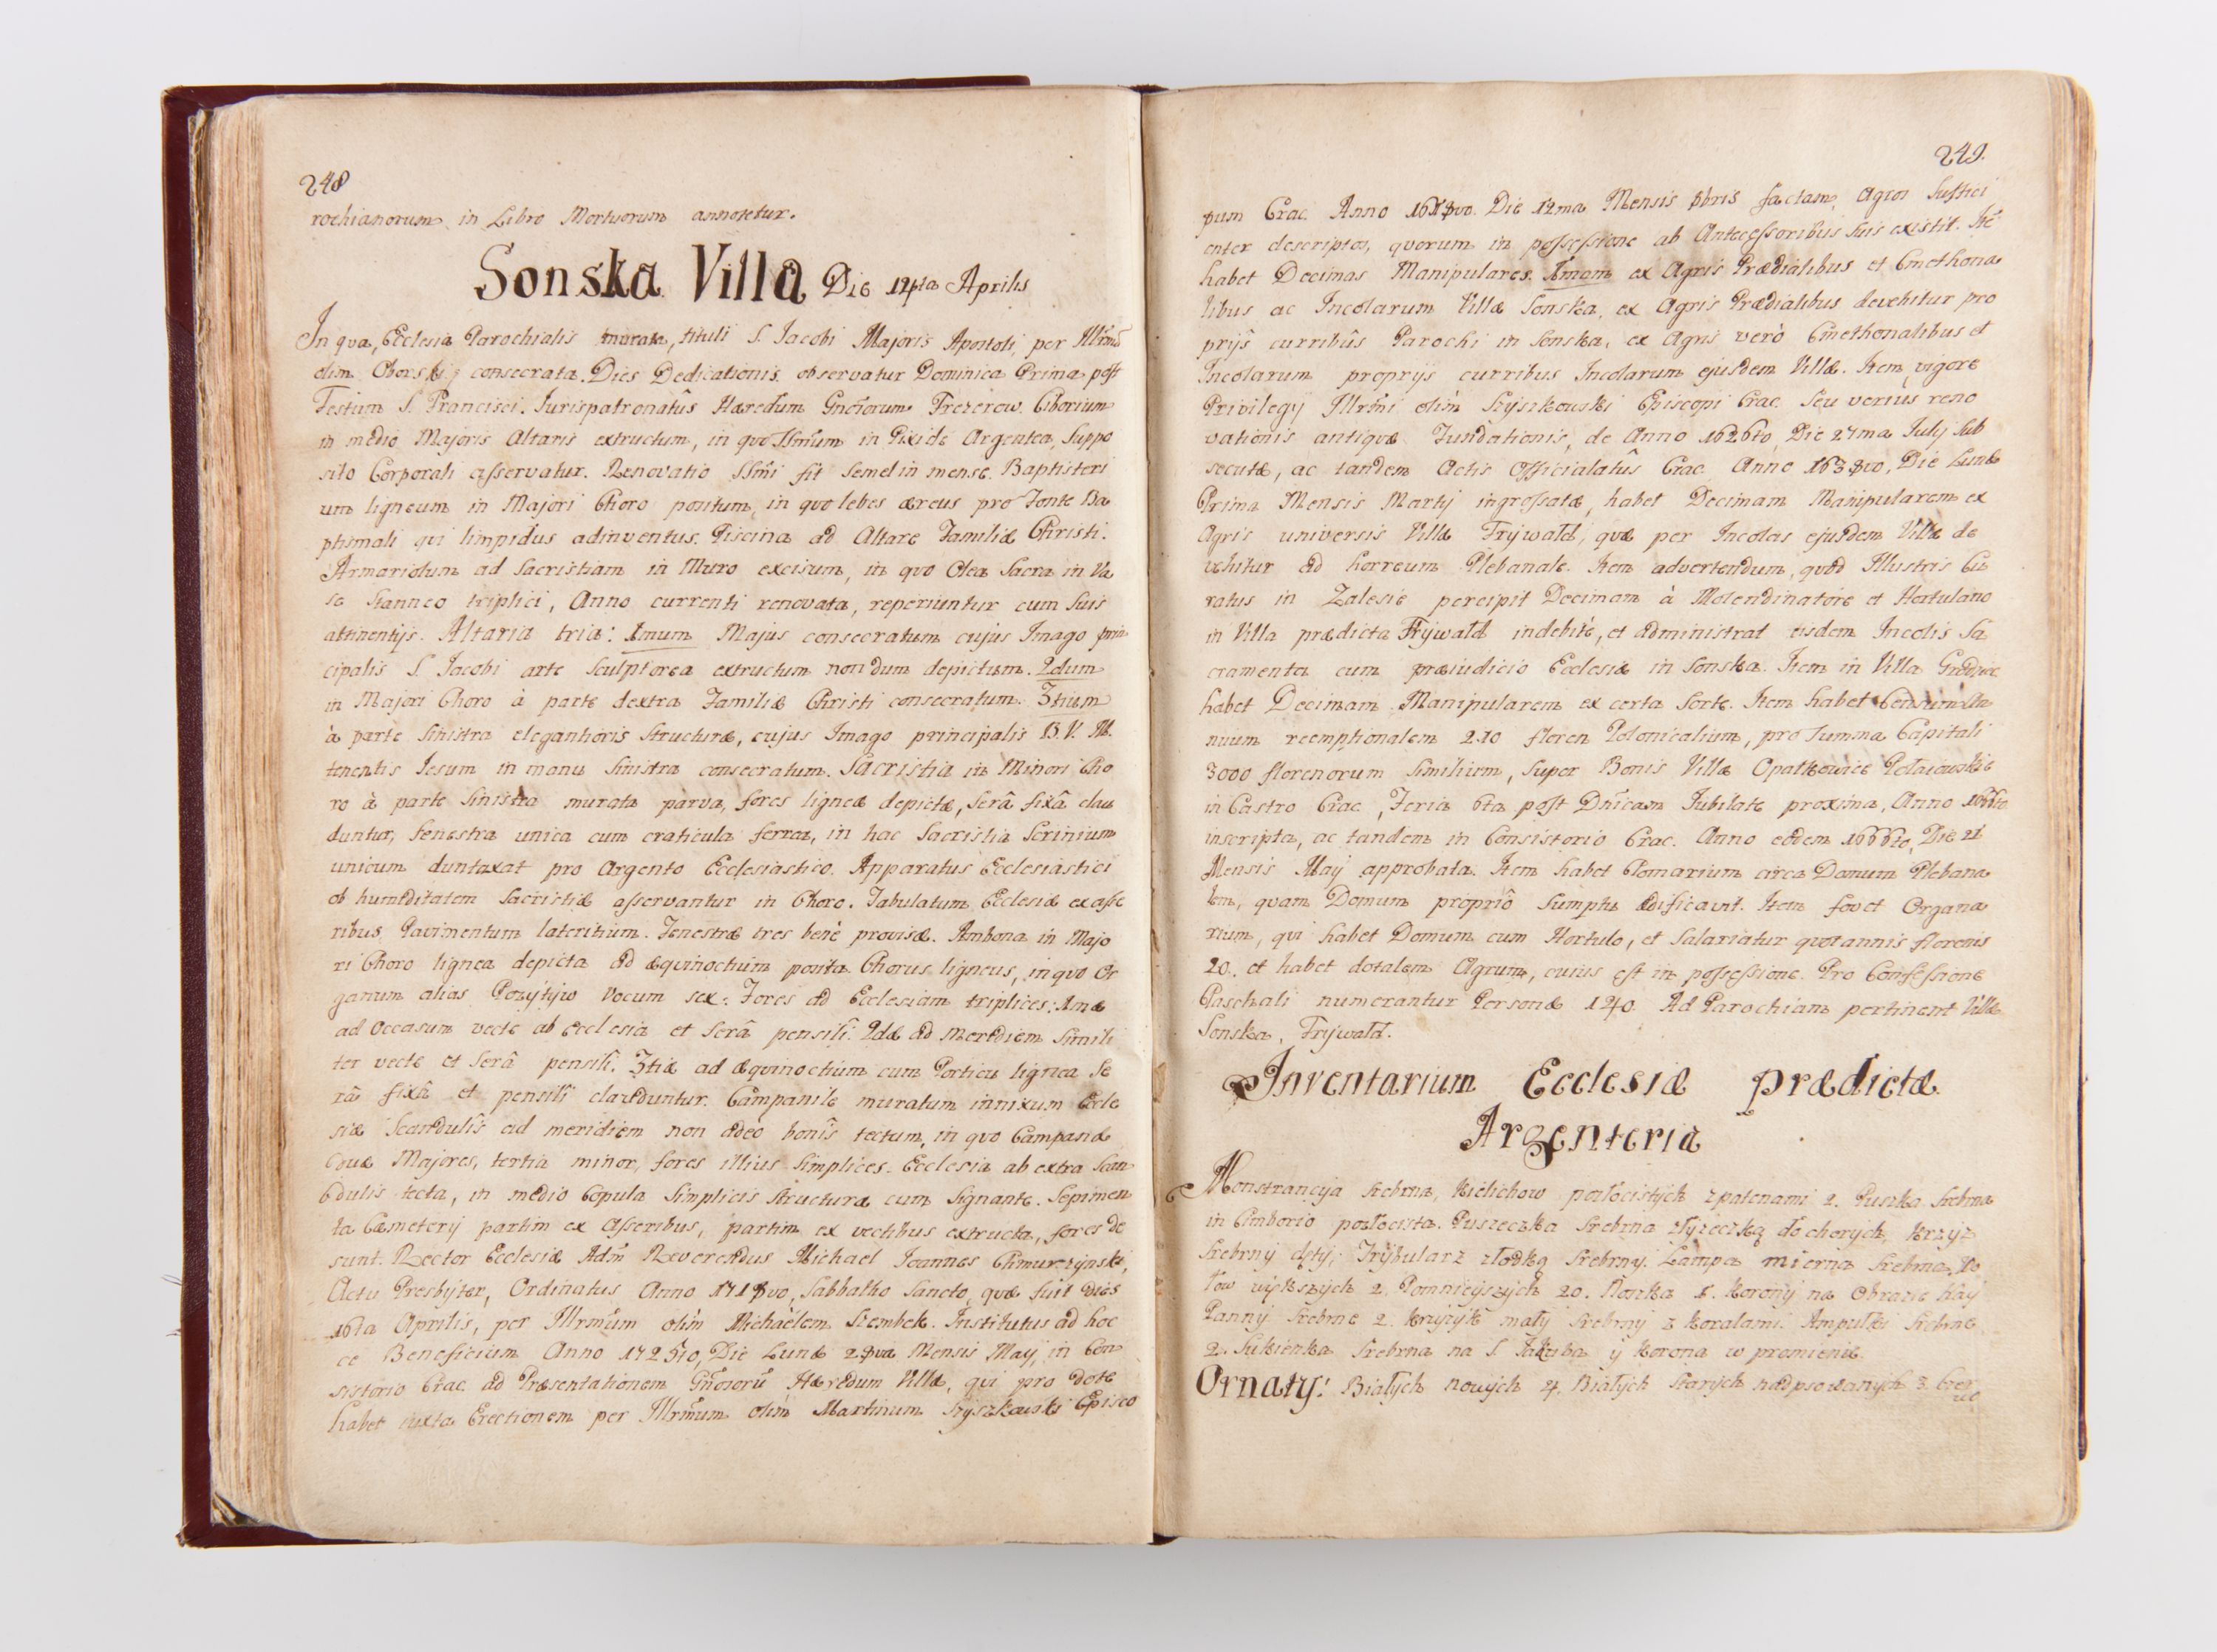 248
rochianorum in Libro Mortuorum annotetur.
Sonska Villa Die 14ta Aprilis
In qua, Ecclesia Parochialis murata, tituli S. Jacobi Majoris Apostoli, per Illrmũ
olim Oborskj consecrata. Dies Dedicationis observatur Dominica Prima post
Festum S. Francisci. Jurispatronatûs Hæredum Gnõrorum Frezerow. Ciborium
in medio Majoris Altaris extructum, in quo SSmũm in Pixide Argentea, Suppo
sito Corporali asservatur. Renovatio SSmi fit semel in mense. Baptisteri
um ligneum in Majori Choro positum, in quo lebes æreus pro Fonte Ba
ptismali qui limpidus adinventus. Piscina ad Altare Familiæ Christi.
Armariolum ad Sacristiam in Muro excisum, in quo Olea Sacra in Va
se stanneo triplici, Anno currenti renovata, reperiuntur cum suis
attinentijs. Altaria tria: 1mum Majus consecratum cujus Imago prin
cipalis S. Jacobi arte sculptorea extructum nondum depictum. 2dum
in Majori Choro à parte dextra Familiæ Christi consecratum. 3tium
à parte sinistra elegantioris structuræ, cujus Imago principalis B. V. M.
tenentis Jesum in manu sinistra consecratum. Sacristia in Minori Cho
ro à parte sinistra murata parva, fores ligneæ depictæ, serâ fixâ clau
duntur, fenestra unica cum craticula ferrea, in hac Sacristia Scrinium
unicum duntaxat pro Argento Ecclesiastico. Apparatus Ecclesiastici
ob humiditatem Sacristiæ asservantur in Choro. Tabulatum Ecclesiæ ex asse
ribus Pavimentum lateritium. Fenestræ tres benè provisæ. Ambona in Majo
ri Choro lignea depicta ad æquinoctium posita. Chorus ligneus, in quo Or
ganum alias Pozytyw Vocum sex. Fores ad Ecclesiam triplices: 1mæ
ad Occasum vecte ab Ecclesia et serâ pensili. 2dæ ad Meridiem simili
ter vecte et serâ pensili. 3tiæ ad Æquinoctium cum Porticu lignea se
râ fixâ et pensili clauduntur. Campanile muratum innixum Eccle
siæ Scandulis ad meridiem non adeo bonis tectum, in quo Campanæ
duæ Majores, tertia minor, fores illius simplices. Ecclesia ab extra scan
dulis tecta, in medio Copula simplicis structuræ cum signante. Sepimen
ta Cæmeterij partim ex Asseribus, partim ex vectibus extructa, fores de
sunt. Rector Ecclesiæ Adm̃ Reverendus Michael Joannes Chmurczynski,
Actu Presbyter, Ordinatus Anno 1718vo, Sabbatho Sancto, quæ fuit dies
16ta Aprilis, per Illrmũm olim Michaëlem Szembek. Institutus ad hoc
ce Beneficium Anno 1725to, Die Lunæ 28va Mensis Maij, in Con
sistorio Crac. ad Præsentationem Gñosorũ Hæredum Villæ, qui pro dote
habet iuxta Erectionem per Illrmũm olim Martinum Szyszkowski Episco
249.
pum Crac. Anno 1618vo. Die 12ma Mensis Xbris factam, Agros sufici
enter descriptos, quorum in possessione ab Antecessoribus suis existit. Itẽ
habet Decimas Manipulares. 1mam ex Agris Prædialibus et Cmethona
libus ac Incolarum Villæ Sonska, ex Agris Prædialibus devehitur pro
prijs curribûs Parochi in Sonska, ex Agris verò Cmethonalibus et
Incolarum proprijs curribus Incolarum ejusdem Villæ. Item, vigore
Privilegij Illrmi olim Szyszkowski Episcopi Crac. seu verius reno
vationis antiquæ Fundationis, de Anno 1626to, Die 27ma Julij sub
secutæ, ac tandem Actis Officialatûs Crac. Anno 1638vo, Die Lunæ
Prima Mensis Martij ingrossatæ, habet Decimam Manipularem ex
Agris universis Villæ Frywald, quæ per Incolas ejusdem Villæ de
vehitur ad horreum Plebanale. Item advertendum, quod Illustris Cu
ratus in Zalesie percipit Decimam à Molendinatore et Hortulano
in Villa prædicta Frywald indebitè, et administrat eisdem Incolis Sa
cramenta cum præiudicio Ecclesiæ in Sonska. Item in Villa
habet Decimam Manipularem ex certa sorte. Item habet Censum An
nuum reemptionalem 210 floren Polonicalium, pro Summa Capitali
3000 florenorum similium, super Bonis Villæ Opatkowice
in Castro Crac, Feria 6ta post Dñicam Jubilate proxima, Anno 1666to
inscripta, ac tandem in Consistorio Crac. Anno eodem 1666to, Die 21
Mensis Maij approbata. Item habet Pomarium circa Domum Plebana
lem, quam Domum propriô sumptu ædificavit. Item fovet Organa
rium, qui habet Domum cum Hortulo, et salariatur quotannis florenis
20. et habet dotalem Agrum, cuius est in possessione. Pro Confessione
Paschali numerantur Personæ 140. Ad Parochiam pertinent Villæ
Sonska, Frywald.
Inventarium Ecclesiæ prædictæ.
Argenteria
Monstrancyja srebrna, kielichow pozłocistych z patenami 2. Puszka srebrna
in Cimborio pozłocista. Puszeczka srebrna z łyzeczką do chorych, krzyz
srebrny dęty, Trybularz z łodką srebrny. Lampa mierna srebrna, Wo
tow większych 2. Pomnieyszych 20. Rozka 1. Korony na Obrazie Nay
Panny srebrne 2. krzyzyk mały srebrny z koralami. Ampułki srebrne
2. Sukienka srebrna na S. Jakuba y korona w promienie.
Ornaty: Białych nowych 4. Białych starych nadpsowanych 3. Czer
wo